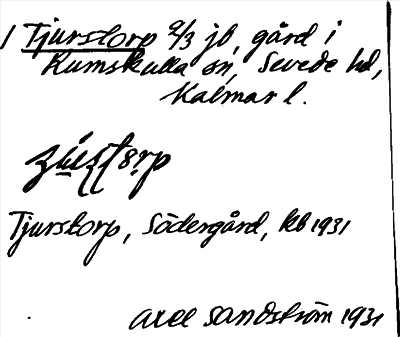 1 Tjurstorp 2/3 jb, gård i
Rumskulla sn, Sevede hd,
Kalmar l.
Tjurstorp, Södergård, kb 1931
Axel Sandström 1931